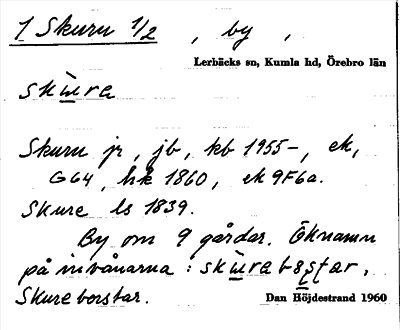 1 Skuru 1/2, by,
Lerbäcks sn, Kumla hd, Örebro län
skùra
Skuru jr, jb, kb 1955-, ek,
G64, hk 1860, ek 9F6a.
Skure ls 1839.
By om 9 gårdar. Öknamn
på invånarna: skùrabosʈar,
Skureborstar.
Dan Höjdestrand 1960